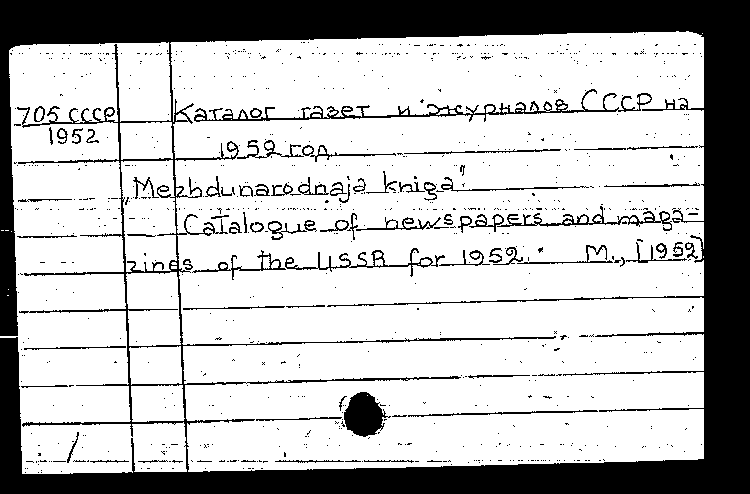 705 СССР Каталог газет и журналов СССР на
1952 1952 год.
„Mezhdunarodnaja kniga"
Catalogue of newspapers and maga-
zines of the USSR for 1952. M., [1952]